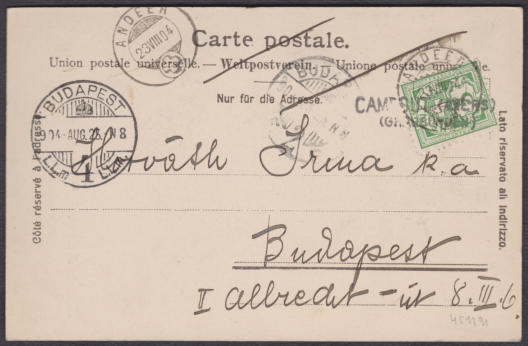 ANDEER
23.VIII.04
Carte postale.
Union postale universelle. — Weltpostverein. — Unione postale universale.
Nur für die Adresse.
BUDAPEST
904 AUG. 25. N 8
4
ANDEER
(GRAUBÜNDEN)
5
Côté réservé à l'adresse.
Lato riservato all indirizzo.
Horváth Irma k.a
Budapest
I Albrecht-út 8. III. 6